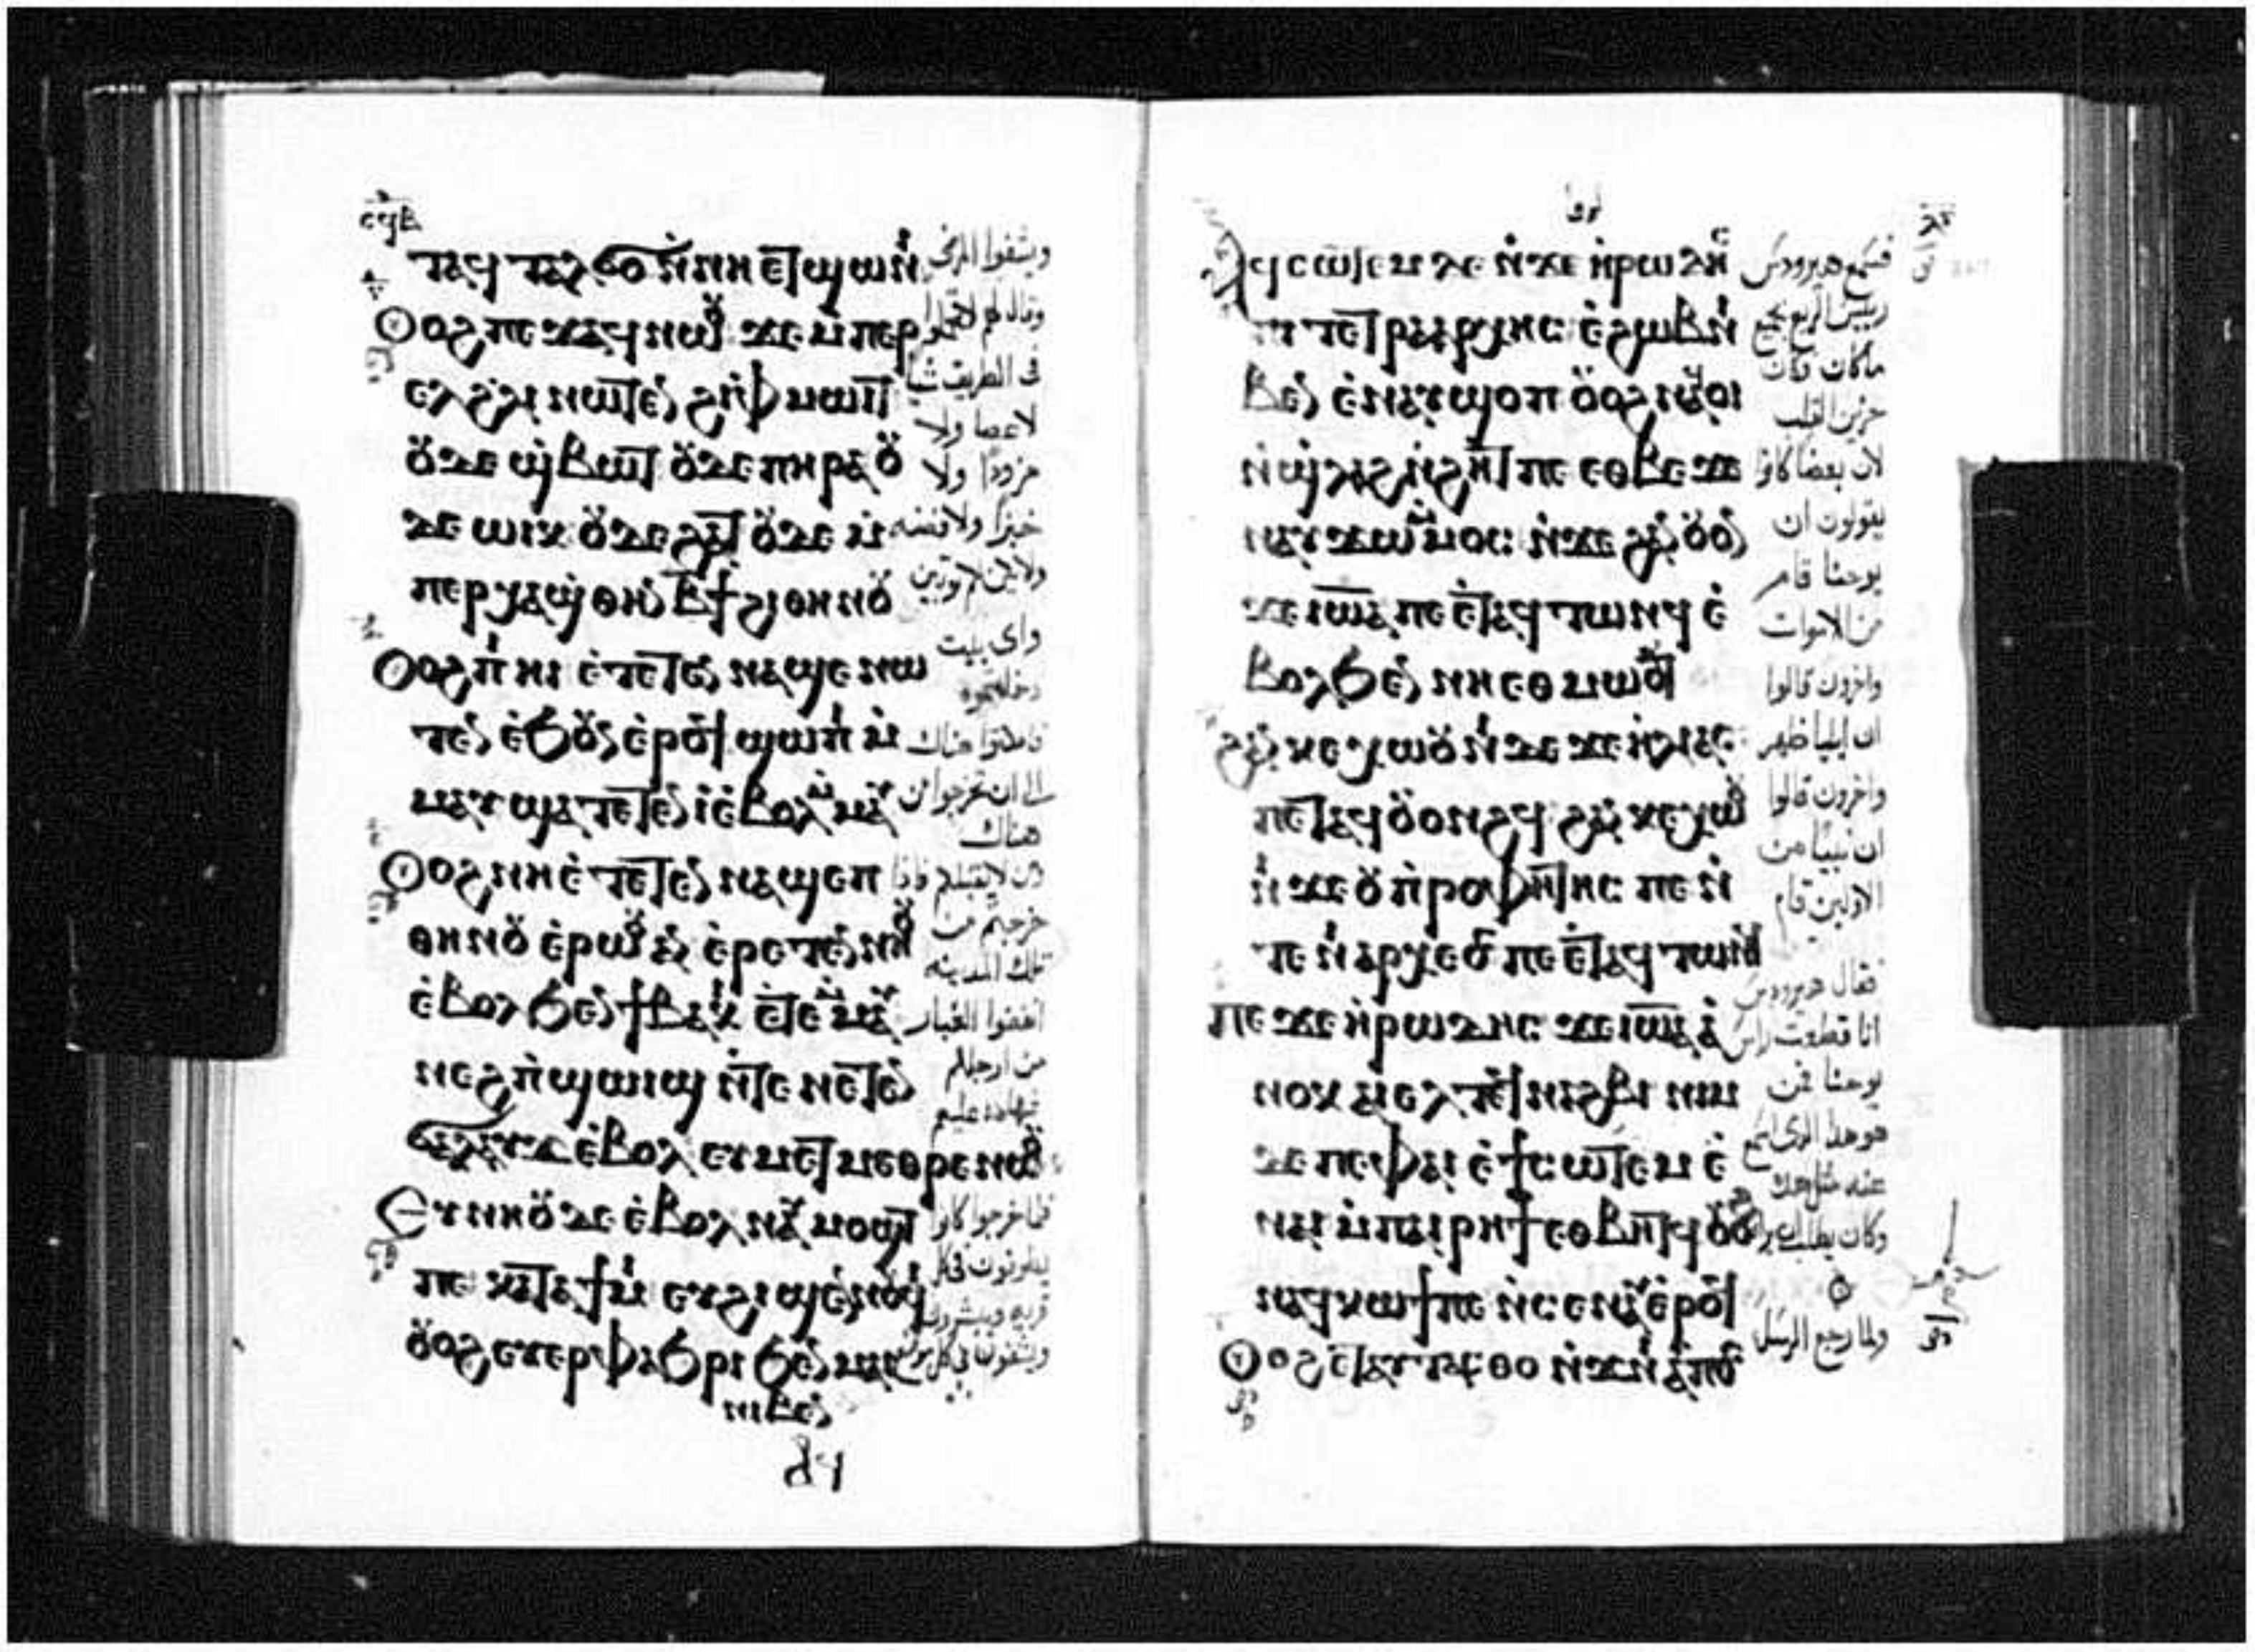 ⲧⲁϥ ⲧⲁⲗϭⲟ ⲛ̀ⲛⲏ ⲉⲧϣⲱⲛⲓ
ⲟⲩⲟϩ ⲡⲉϫⲁϥ ⲛⲱⲟⲩ ϫⲉ ⲙ̀ⲡⲉⲣ
ⲉⲗ ϩⲗⲓ ⲛⲱⲧⲉⲛ ϩⲓ ⲫⲙⲱⲓⲧ
ⲟⲩⲇⲉ ϣⲃⲱⲧ ⲟⲩⲇⲉ ⲡⲏⲣⲁ ⲟⲩ
ⲇⲉ ⲱⲓⲕ ⲟⲩⲇⲉ ϩⲁⲧ ⲟⲩⲇⲉ ⲙ̀
ⲡⲉⲣⲭⲁ ϣⲑⲏⲛ ⲃϯ ϩⲓ ⲑⲏⲛⲟⲩ
ⲟⲩⲟϩ ⲡⲓⲏⲓ ⲉ̀ⲧⲉⲧⲉⲛⲛⲁϣⲉ ⲛⲱ
ⲧⲉⲛ ⲉ̀ϧⲟⲩⲛ ⲉ̀ⲣⲟϥ ϣⲱⲡⲓ ⲙ̀
ⲙⲁⲩ ϣⲁⲧⲉⲧⲉⲛⲓ̀ ⲉ̀ⲃⲟⲗ ⲙ̀ⲙⲁⲩ
ⲟⲩⲟϩ ⲛⲏ ⲉ̀ⲧⲉⲧⲉⲛⲛⲁϣⲉⲡ
ⲑⲏⲛⲟⲩ ⲉ̀ⲣⲱⲟⲩ ⲁⲛ ⲉ̀ⲣⲉⲧⲉⲛⲛⲏⲟⲩ
ⲉ̀ⲃⲟⲗ ϧⲉⲛ ϯⲃⲁⲕⲓ ⲉ̀ⲧⲉ ⲙ̀ⲙⲁⲩ
ⲛⲉϩ ⲡ̀ϣⲱⲓϣ ⲛ̀ⲧⲉ ⲛⲉⲧⲉⲛ
ϭⲁⲗⲁⲩϫ ⲉ̀ⲃⲟⲗ ⲉⲩⲙⲉⲧⲙⲉⲑⲣⲉ ⲛⲱⲟⲩ
ⲉⲩⲛⲏⲟⲩ ⲇⲉ ⲉ̀ⲃⲟⲗ ⲛⲁⲩⲙⲟϣⲓ
ⲡⲉ ⲕⲁⲧⲁ ϯⲙⲓ ⲉⲩϩⲓϣⲉⲛⲛⲟⲩϥⲓ
ⲟⲩⲟϩ ⲉⲩⲉⲣⲫⲁϧⲣⲓ ϧⲉⲛ ⲙⲁⲓ
ⲛⲓⲃⲉⲛ
ويشفوا المرضى
وقال لهم لا تحملوا
فى الطريق شيا
لا عصا ولا
مزودًا ولا
خبزًا ولا فضه
واى بيت
دخلتموه
هناك
خرجتم من
تلك المدينه
انفضوا الغبار
من ارجلكم
شهاده عليهم
فلما خرجوا كانوا
يطوفون فى كل
قريه ويبشرون
ⲁϥⲥⲱⲧⲉⲙ ⲇⲉ ⲛ̀ϫⲉ ⲏ̀ⲣⲱⲇⲏⲥ
ⲡⲓⲧⲉⲧⲣⲁⲁⲣⲭⲏⲥ ⲉ̀ϩⲱⲃ ⲛⲓ
ⲃⲉⲛ ⲉ̀ⲛⲁⲩϣⲟⲡ ⲟⲩⲟϩ ⲛⲁϥⲟⲓ
ⲛ̀ϣⲗⲁϩ ⲛ̀ϩⲏⲧ ⲡⲉ ⲉⲑⲃⲉ ϫⲉ
ⲛⲁⲩϫⲱ ⲙ̀ⲙⲟⲥ ⲛ̀ϫⲉ ϩⲁⲛⲟⲩⲟⲛ
ϫⲉ ⲓⲱⲁ ⲡⲉ ⲉ̀ⲧⲁϥⲧⲱⲛϥ ⲉ̀
ⲃⲟⲗ ϧⲉⲛ ⲛⲏ ⲉⲑⲙⲱⲟⲩⲧ
ϩⲁⲛⲕⲉⲭⲱⲟⲩⲛⲓ ⲇⲉ ϫⲉ ⲏ̀ⲗⲓⲁⲥ
ⲡⲉⲧⲁϥⲟⲩⲟⲛϩϥ ϩⲁⲛⲕⲉⲭⲱⲟⲩ
ⲛⲓ ϫⲉ ⲟⲩⲡ̀ⲣⲟⲫⲏⲧⲏⲥ ⲡⲉ ⲛ̀
ⲧⲉ ⲛⲓⲁⲣⲭⲉⲟⲥ ⲡⲉ ⲉ̀ⲧⲁϥⲧⲱⲛϥ
ⲡⲉϫⲉ ⲏ̀ⲣⲱⲇⲏⲥ ϫⲉ ⲓⲱⲁ ⲁ̀
ⲛⲟⲕ ⲁⲓⲉⲗ ⲧⲉϥⲛⲁϩⲃⲓ ⲛⲓⲙ
ⲇⲉ ⲡⲉ ⲫⲁⲓ ⲉ̀ϯⲥⲱⲧⲉⲙ ⲉ̀
ⲛⲁⲓ ⲙ̀ⲡⲁⲓⲣⲏϯ ⲉⲑⲃⲏⲧϥ ⲟⲩⲟϩ
ⲛⲁϥⲕⲱϯ ⲡⲉ ⲛ̀ⲥⲉⲛⲁⲩ ⲉ̀ⲣⲟϥ
ⲟⲩⲟϩ ⲉ̀ⲧⲁⲩⲧⲁⲥⲑⲟ ⲛ̀ϫⲉ ⲛⲓⲁⲡⲟⲥ
فسمع هيرودس
رييس الربع بجميع
ماكان فكان
حزين القلب
لان بعضا كانوا
يقولون ان
يوحنا قام
من الاموات
واخرون قالوا
ان ايليا ظهر
واخرون قالوا
ان نبيًا من
الاولين قام
فقال هيرودس
انا قطعت راس
يوحنا فمن
هو هذا الذى اسمع
عنه مثل هذا
وكان يطلب ان يراه
ولما رجع الرسل